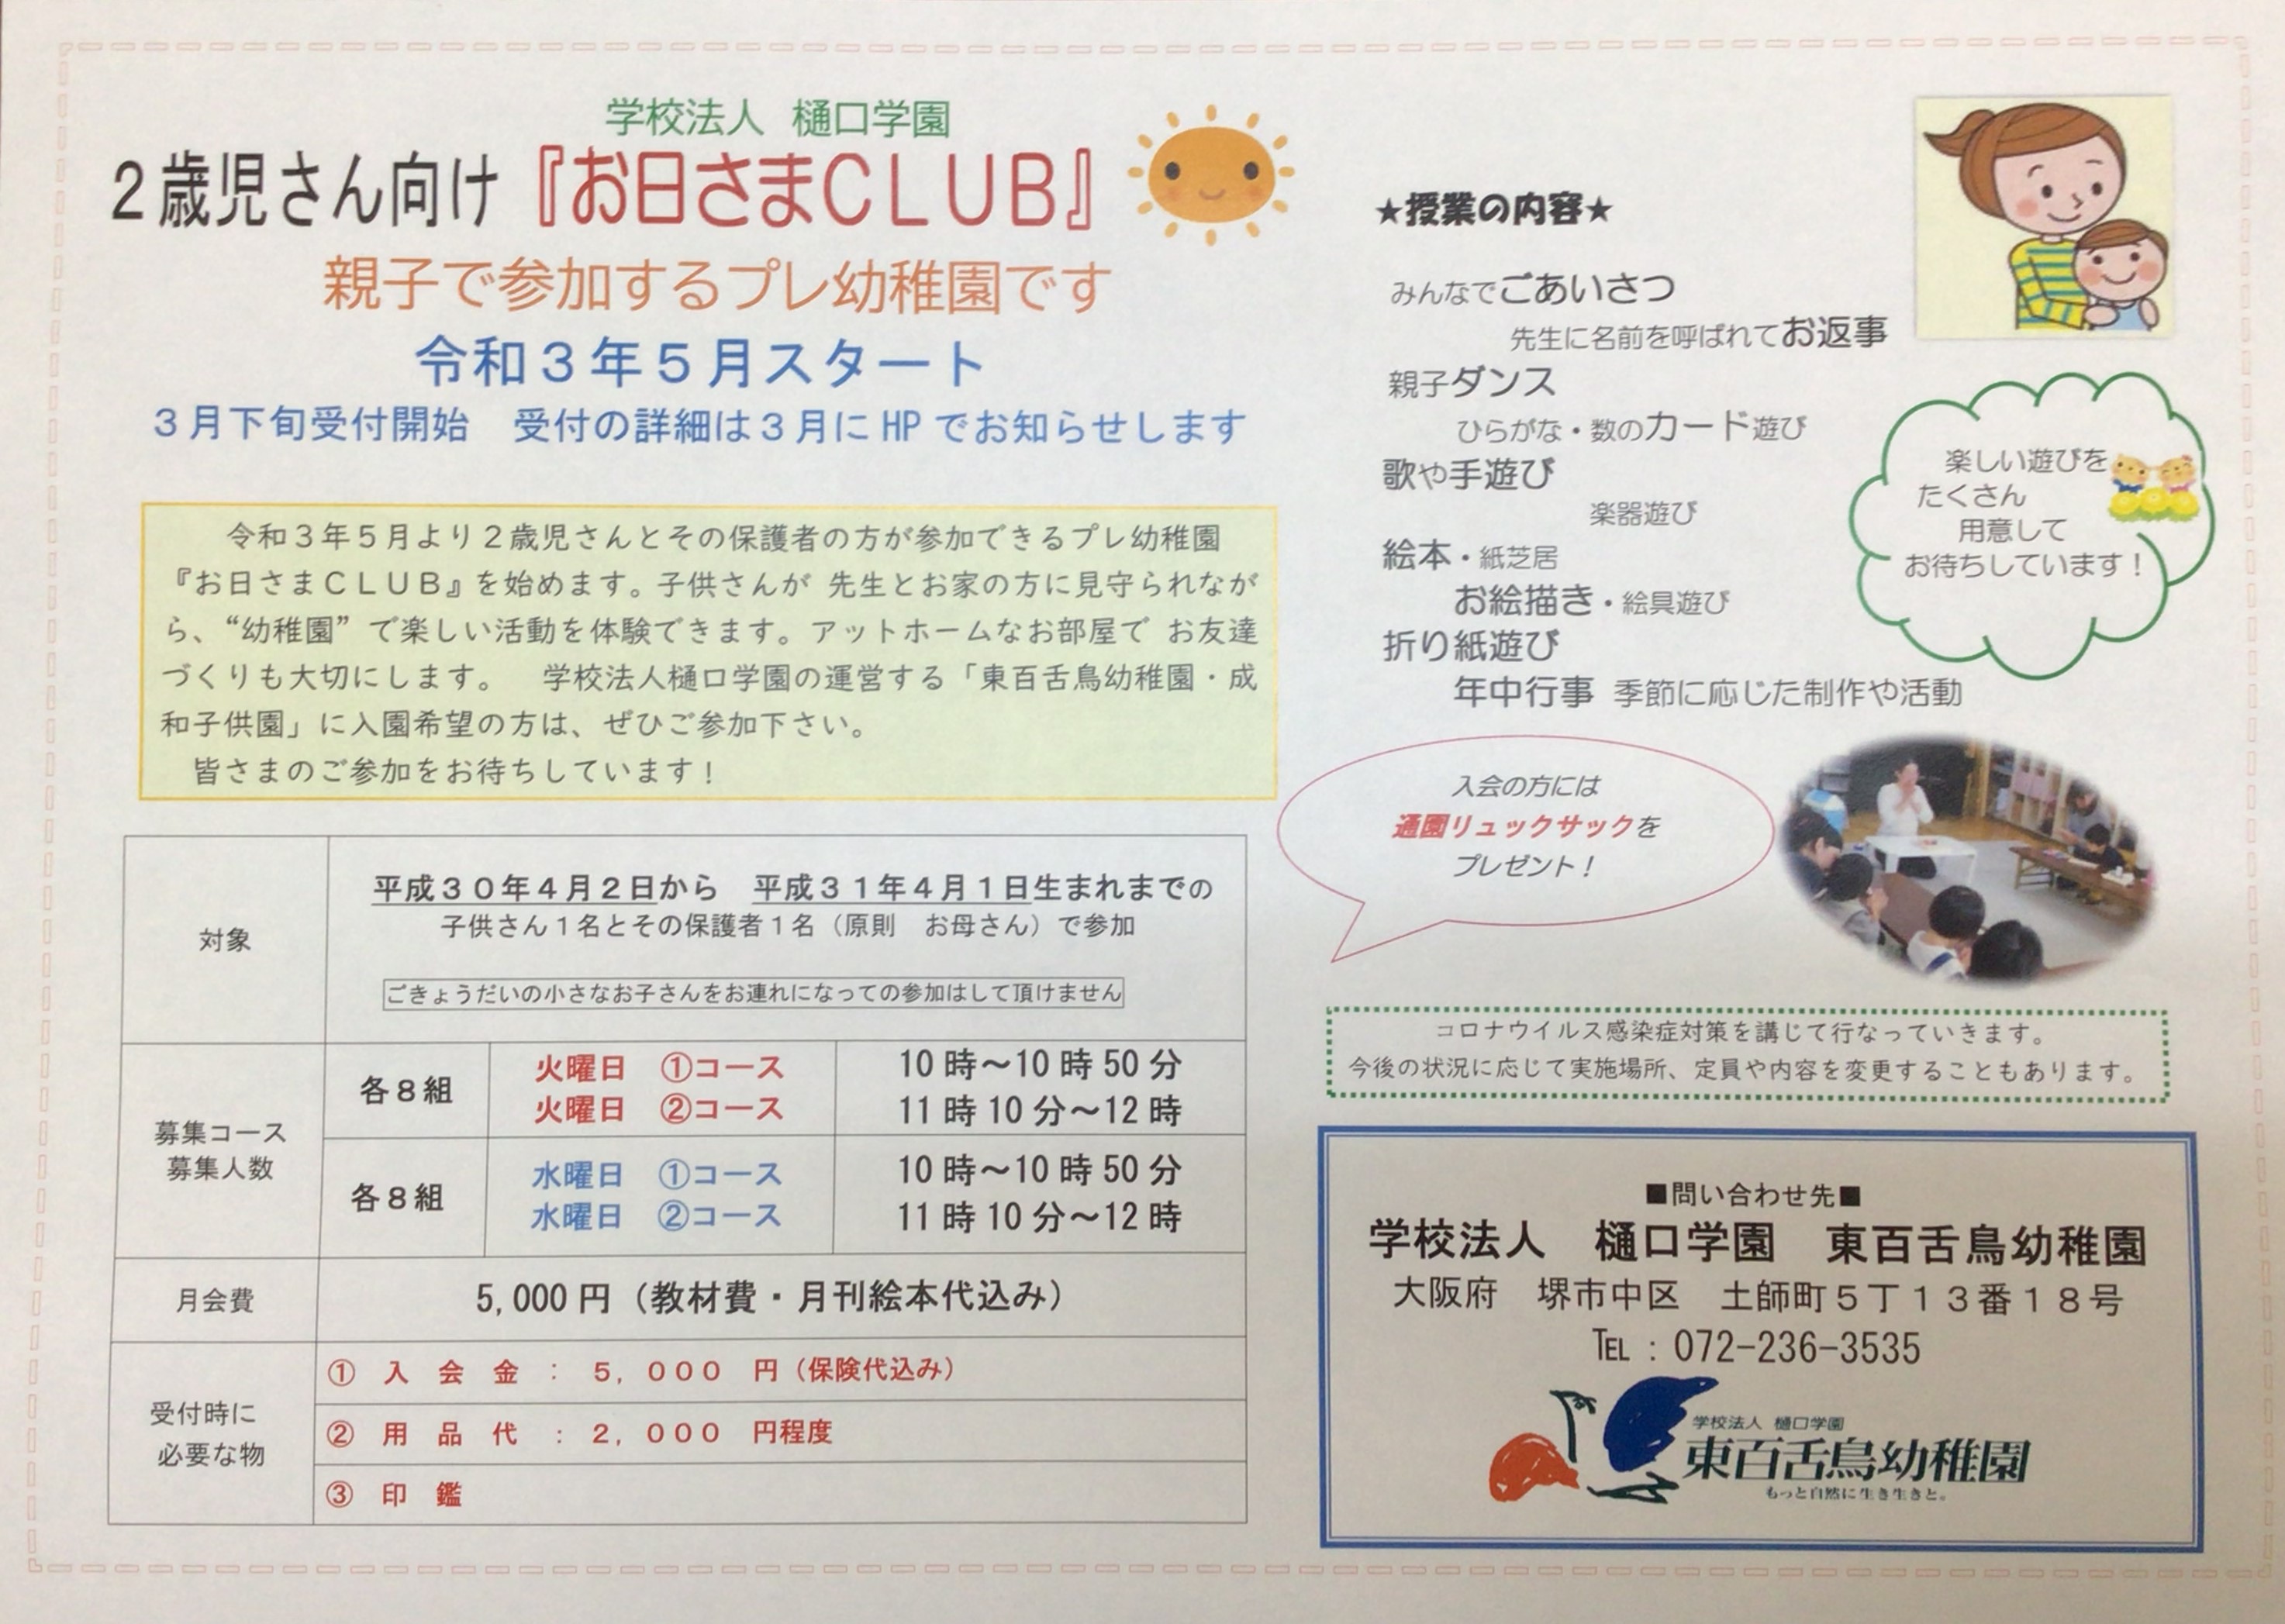 学校法人 樋口学園
2歳児さん向け『お日さまCLUB』
親子で参加するプレ幼稚園です
令和3年5月スタート
3月下旬受付開始 受付の詳細は3月にHPでお知らせします
令和3年5月より2歳児さんとその保護者の方が参加できるプレ幼稚園
『お日さまCLUB』を始めます。子供さんが 先生とお家の方に見守られなが
ら、“幼稚園”で楽しい活動を体験できます。アットホームなお部屋で お友達
づくりも大切にします。 学校法人樋口学園の運営する「東百舌鳥幼稚園・成
和子供園」に入園希望の方は、ぜひご参加下さい。
皆さまのご参加をお待ちしています!
対象
平成30年4月2日から 平成31年4月1日生まれまでの
子供さん1名とその保護者1名(原則 お母さん)で参加
ごきょうだいの小さなお子さんをお連れになっての参加はして頂けません
募集コース
募集人数
各8組
火曜日 ①コース 10時~10時50分
火曜日 ②コース 11時10分~12時
各8組
水曜日 ①コース 10時~10時50分
水曜日 ②コース 11時10分~12時
月会費
5,000円(教材費・月刊絵本代込み)
受付時に
必要な物
① 入会金 : 5,000 円(保険代込み)
② 用品代 : 2,000 円程度
③ 印鑑
★授業の内容★
みんなでごあいさつ
先生に名前を呼ばれてお返事
親子ダンス
ひらがな・数のカード遊び
歌や手遊び
楽器遊び
絵本・紙芝居
お絵描き・絵具遊び
折り紙遊び
年中行事 季節に応じた制作や活動
楽しい遊びを
たくさん
用意して
お待ちしています!
入会の方には
通園リュックサックを
プレゼント!
コロナウイルス感染症対策を講じて行なっていきます。
今後の状況に応じて実施場所、定員や内容を変更することもあります。
■問い合わせ先■
学校法人 樋口学園 東百舌鳥幼稚園
大阪府 堺市中区 土師町5丁13番18号
℡:072-236-3535
学校法人 樋口学園
東百舌鳥幼稚園
もっと自然に生き生きと。